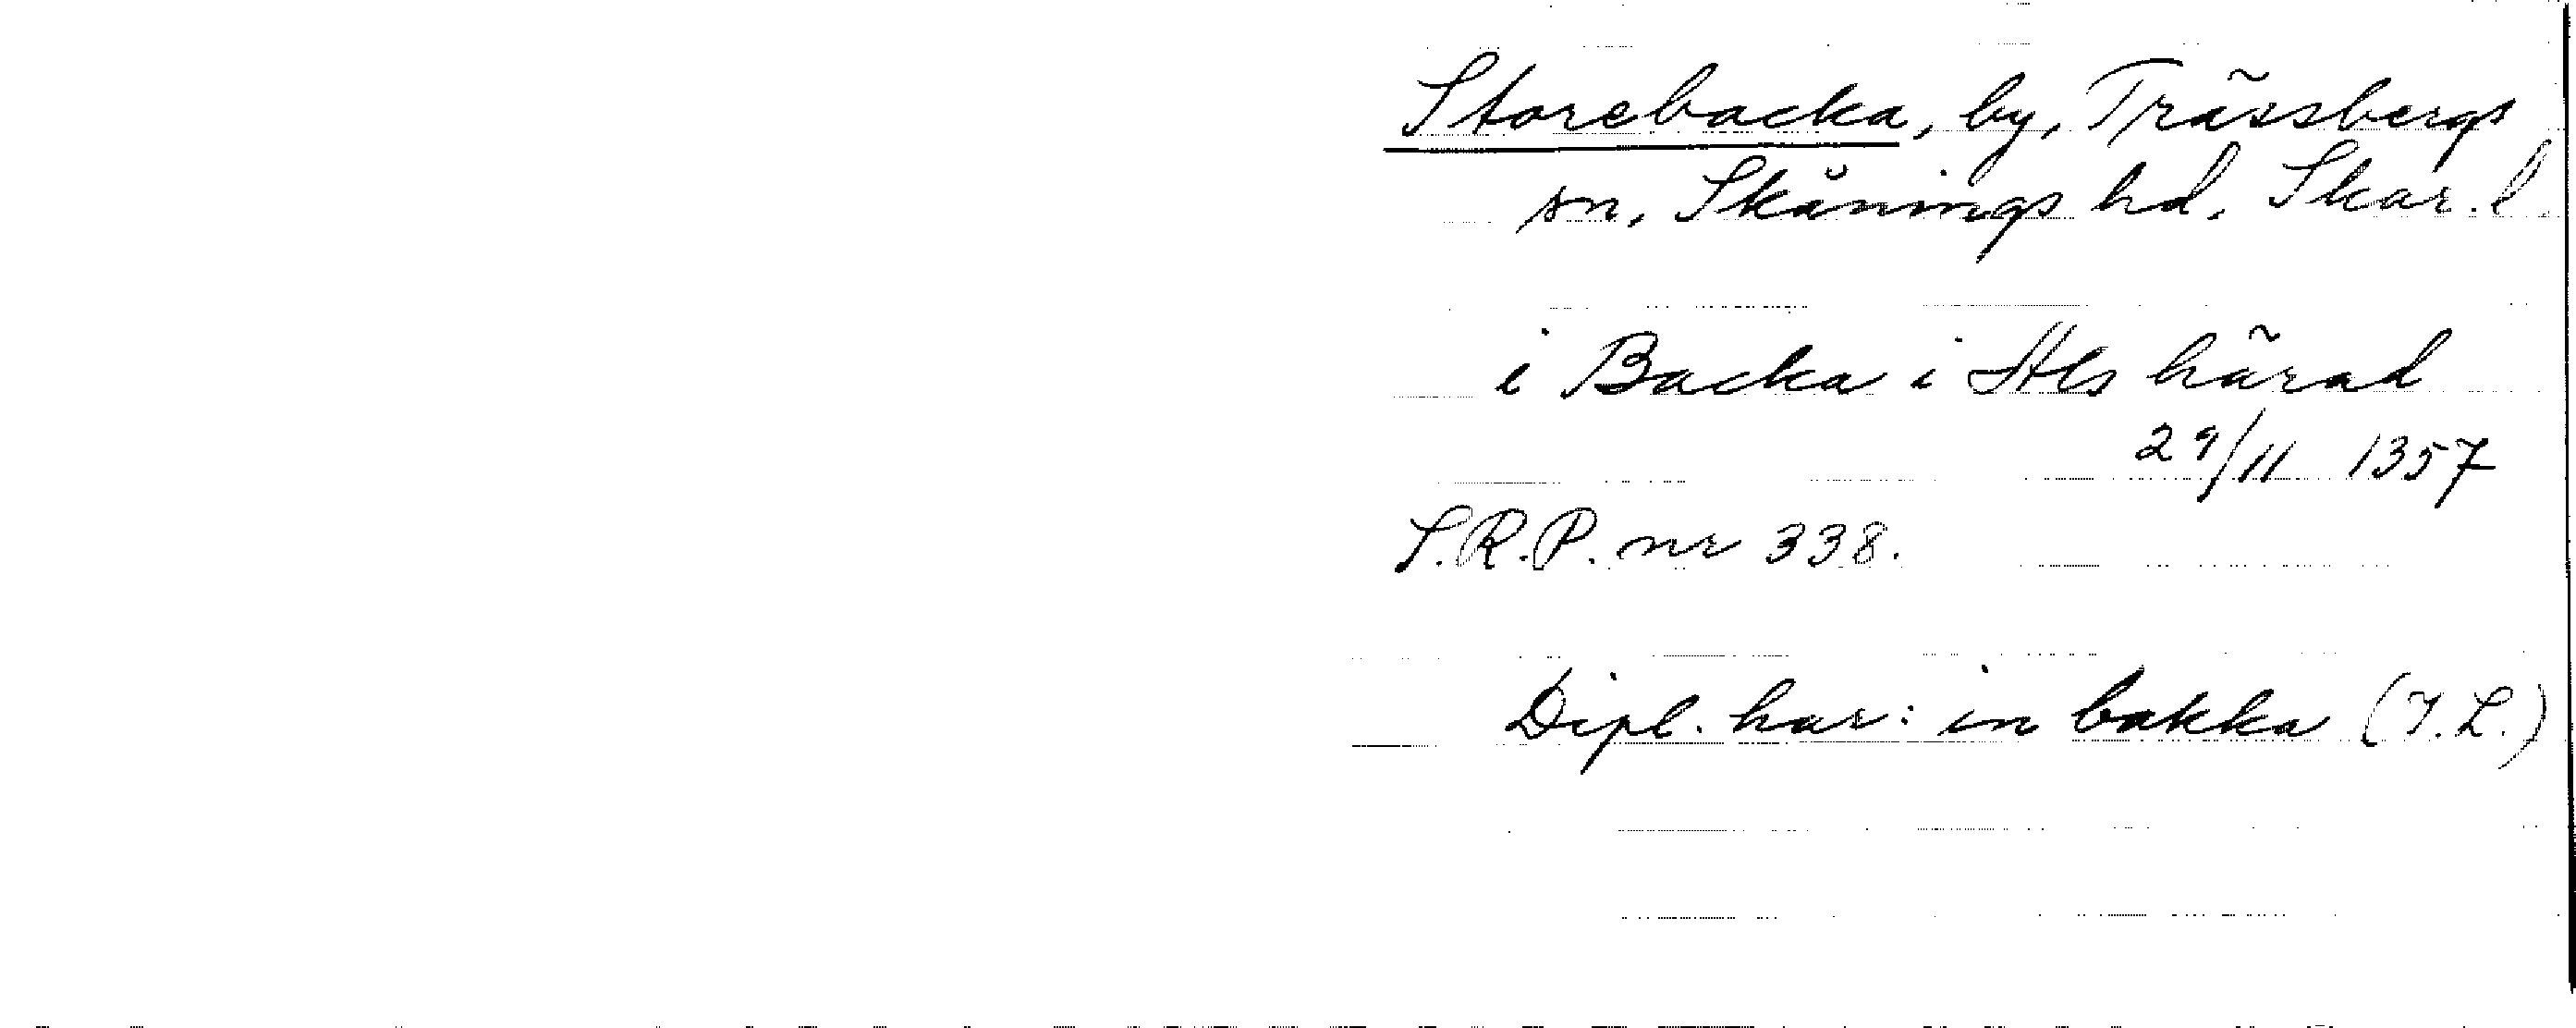 Storebacka, by, Trässbergs
sn, Skånings hd, Skar. l.
i Backa i Als härad
29/11 1357
S.R.P. nr 338.
Dipl. har: in bakka (I.L.)